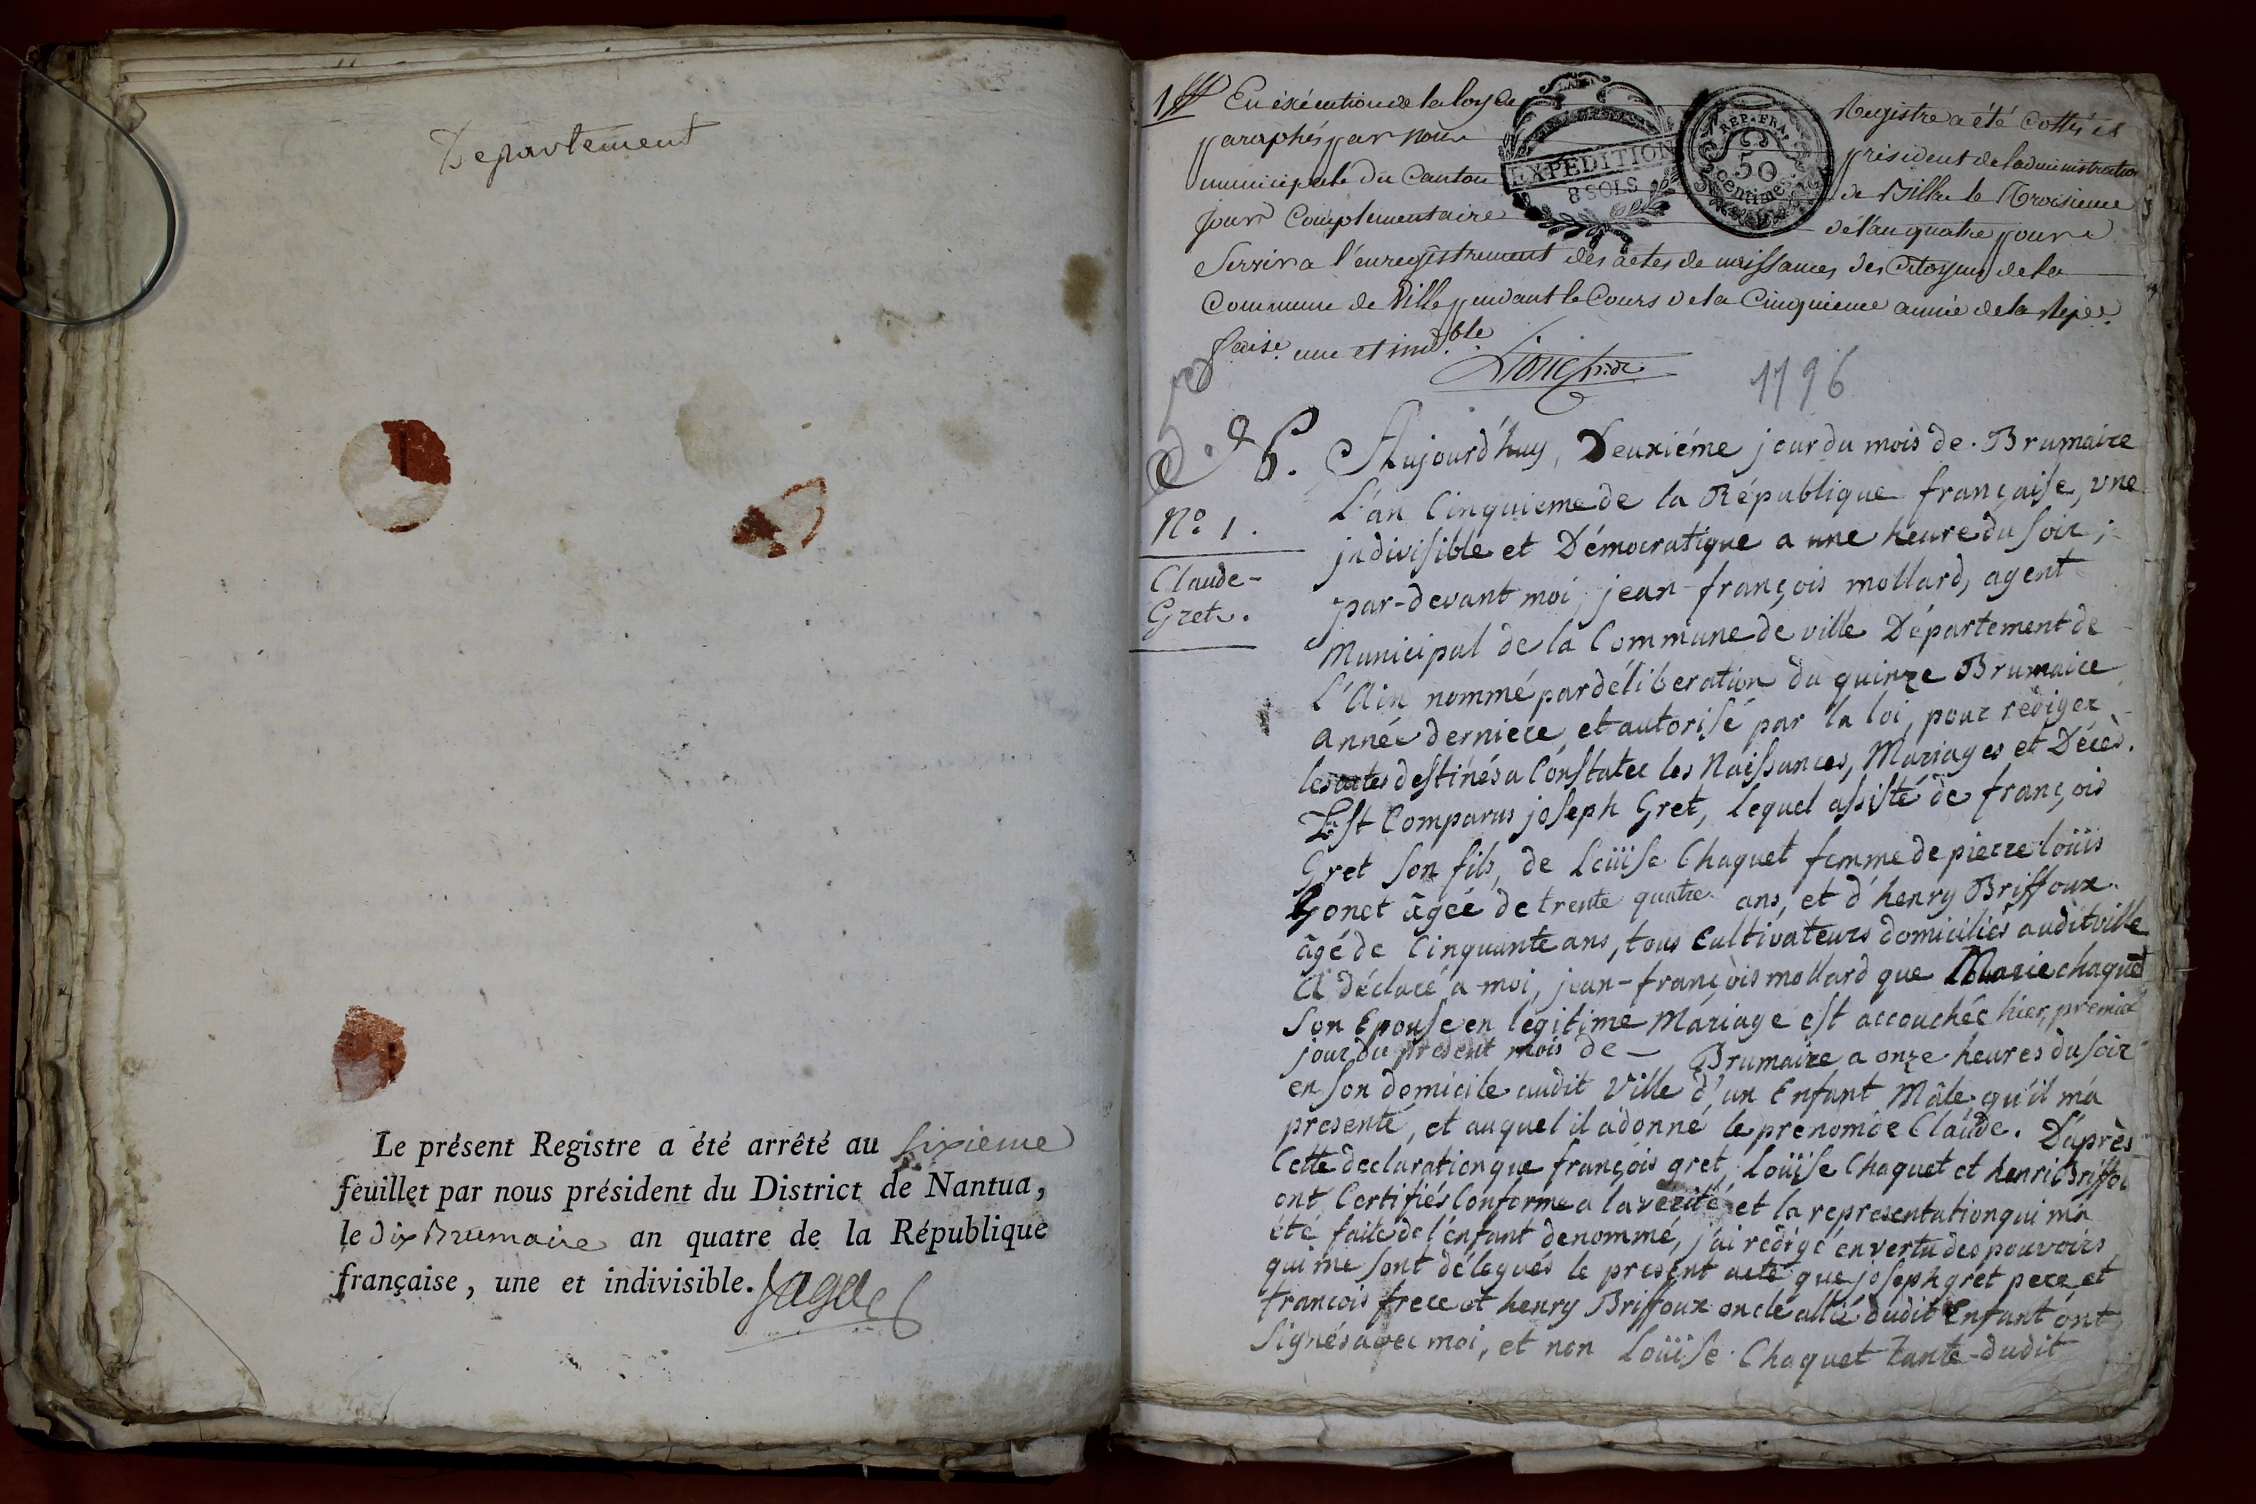 Departement
Le présent Registre a été arrêté au sixieme
feuillet par nous président du District de Nantua,
le dix Brumaire an quatre de la République
française, une et indivisible.
En éxécution de la loy Ce Registre a été Cottés et
paraphés par nous président de l'administration
municipale du Canton de Ville le Troisieme
jour Complementaire de l'an quatre pour
Servir a l'enregistrement des actes de naissances des Citoyens de la
Commune de Ville pendant le Cours de la Cinquieme année de la Repe.
fçaise. une et indble.
EXPEDITION
8 SOLS
REP. FRA.
50
centimes
1796
N.º 1.
Claude-
Gret.
Aujourd'huy, Deuxiéme jour du mois de Brumaire
L'an Cinquieme de la République française, une
indivisible et Démocratique a une heure du soir;
par-devant moi, jean-françois mollard, agent
Municipal de la Commune de ville Département de
L'Ain nommé par déliberation du quinze Brumaire
année derniere, et autorisé par la loi, pour rédiger
les actes destinés a Constater les Naissances, Mariages et Décès.
Est Comparus joseph Gret, lequel assisté de françois
Gret son fils, de Loüise Chaquet femme de pierre loüis
Gonet âgée de trente quatre ans, et d'henry Briffoux
âgé de Cinquante ans, tous Cultivateurs domiciliés audit ville
A déclaré a moi, jean-françois mollard que Marie chaquet
Son Epouse en légitime Mariage est accouchée hier, premier
jour du présent mois de - Brumaire a onze heures du soir
en son domicile audit Ville d'un Enfant Mâle qu'il m'a
presenté, et auquel il a donné le prenom de Claude. D'après
Cette declaration que françois gret, Loüise Chaquet et henri Briffou
ont Certifiés Conforme a la verité, et la representation qui m'a
été faite de l'énfant denommé, j'ai rédigé en vertu des pouvoirs
qui me sont délegués le present acte que joseph gret pere, et
francois frere et henry Briffoux oncle allié dudit Enfant ont
Signés avec moi, et non Loüise Chaquet tante dudit